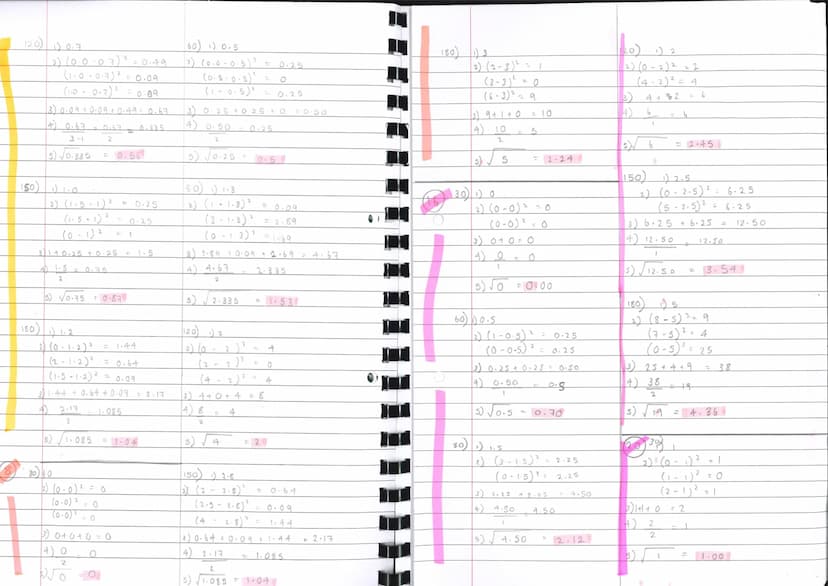 120) 1) 0.7
2) (0.0 - 0.7)² = 0.49
(1.0 - 0.7)² = 0.09
3) 0.09 + 0.09 + 0.49 = 0.67
4) 0.67/3-1 = 0.67/2 = 0.335
5) √0.335 =
60) 1) 0.5
2) (0.0 - 0.5)² = 0.25
(0.5 - 0.5)² = 0
(1 - 0.5)² = 0.25
3) 0.25 + 0.25 + 0 = 0.50
4) 0.50/2 = 0.25
5) √0.25 = 0.5
150) 1) 1.0
2) (1.5 - 1)² = 0.25
(1.5 + 1)² = 0.25
(0 - 1)² = 1
3) 1 + 0.25 + 0.25 = 1.5
4) 1.5/2 = 0.75
5) √0.75 = 0.87
2) (1 + 1.3)² = 0.09
4) 4.67/2 = 2.335
5) √2.335 = 1.53
180) 1) 1.2
2) (0 - 1.2)² = 1.44
(2 - 1.2)² = 0.64
(1.5 - 1.2)² = 0.09
3) 1.44 + 0.64 + 0.09 = 2.17
= 1.085
5) √1.085 = 1.04
120) 1) 2
2) (0 - 2)² = 4
(2 - 2)² = 0
(4 - 2)² = 4
3) 4 + 0 + 4 = 8
4) 8/2 = 4
5) √4 = 2
30) 0
2) (0-0)² = 0
(0-0)² = 0
(0-0)² = 0
3) 0+0+0 = 0
4) 0/2 = 0
5) √0 = 0
150) 1) 2.8
2) (2 - 2.8)² = 0.64
(2.5 - 2.8)² = 0.09
(4 - 2.8)² = 1.44
3) 0.64 + 0.09 + 1.44 = 2.17
4) 2.17/2 = 1.085
5) √1.085 = 1.04
180) 1) 3
2) (2 - 3)² = 1
(3 - 3)² = 0
(6 - 3)² = 9
3) 9 + 1 + 0 = 10
4) 10/2 = 5
5) √5 = 2.24
1) 2
(4 - 2)² = 4
= 6
5) √6 = 2.45
15
30) 1) 0
2) (0-0)² = 0
(0-0)² = 0
3) 0+0 = 0
4) 0/1 = 0
5) √0 = 0.00
150) 1) 2.5
2) (0 - 2.5)² = 6.25
(5 - 2.5)² = 6.25
3) 6.25 + 6.25 = 12.50
4) 12.50/1 = 12.50
5) √12.50 = 3.54
60) 1) 0.5
2) (1 - 0.5)² = 0.25
(0 - 0.5)² = 0.25
3) 0.25 + 0.25 = 0.50
4) 0.50/1 = 0.5
5) √0.5 = 0.70
180) 1) 5
2) (8 - 5)² = 9
(7 - 5)² = 4
(0 - 5)² = 25
3) 25 + 4 + 9 = 38
4) 38/2 = 19
5) √19 = 4.36
1) 1.5
2) (3 - 1.5)² = 2.25
(0 - 1.5)² = 2.25
3) 2.25 + 2.25 = 4.50
4) 4.50/1 = 4.50
5) √4.50 = 2.12
20
30) 1
2) (0 - 1)² = 1
(1 - 1)² = 0
(2 - 1)² = 1
3) 1+1+0 = 2
4) 2/2 = 1
5) √1 = 1.00